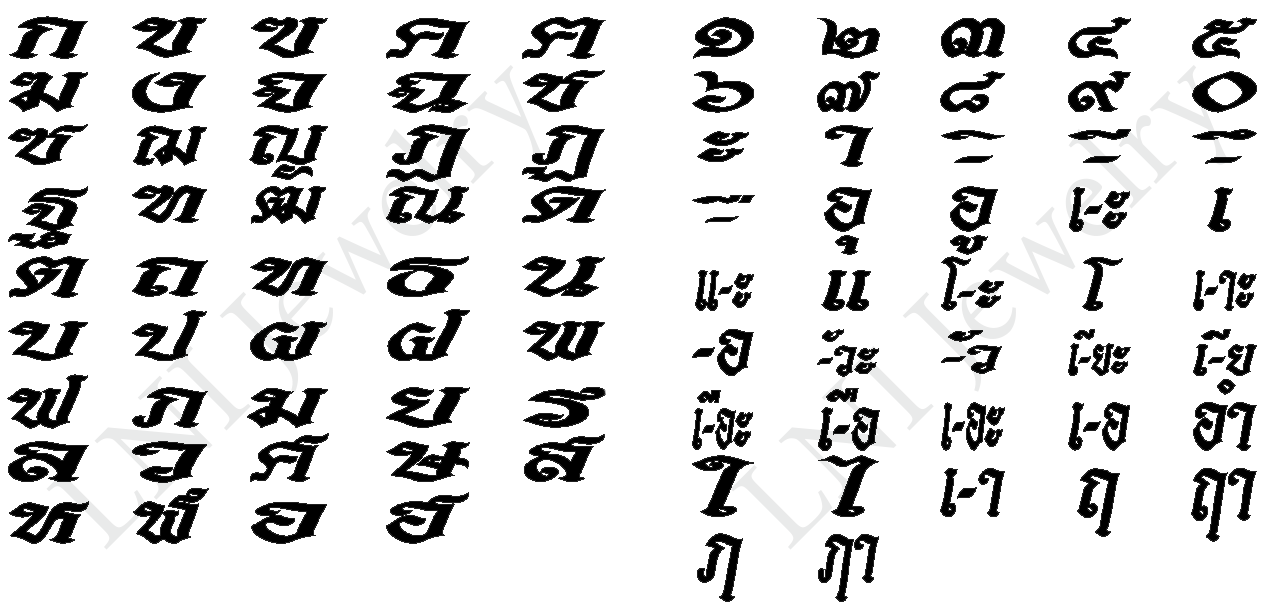 ก ข ฃ ค ฅ
ฆ ง จ ฉ ช
ซ ฌ ญ ฎ ฏ
ฐ ฑ ฒ ณ ด
ต ถ ท ธ น
บ ป ผ ฝ พ
ฟ ภ ม ย ร
ล ว ศ ษ ส
ห ฬ อ ฮ
๑ ๒ ๓ ๔ ๕
๖ ๗ ๘ ๙ ๐
ะ า
อุ อู เ-ะ เ
แ-ะ แ โ-ะ โ เ-าะ
-อ -ัวะ -ัว เ-ียะ เ-ีย
เ-ือะ เ-ือ เ-อะ เ-อ อำ
ใ ไ เ-า ฤ ฤา
ฦ ฦา
LNI Jewelry
LNI Jewelry